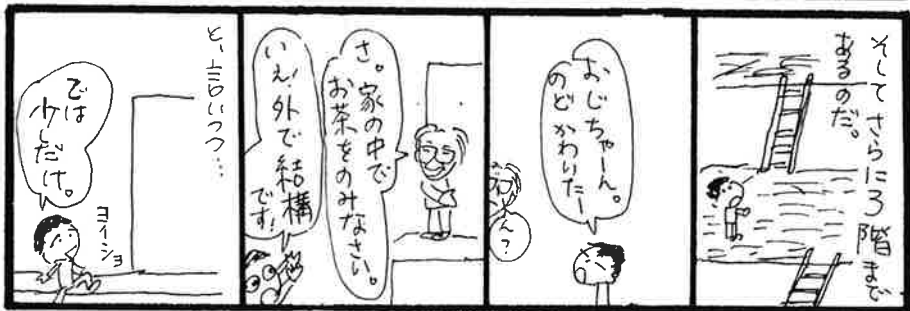 そしてさらに3階まで
あるのだ。
おじちゃーん。
のどかわいたー
ん?
さ。家の中で
お茶をのみなさい。
いえ!外で結構
です!
と、言いつつ…
では
少しだけ。
ヨイショ